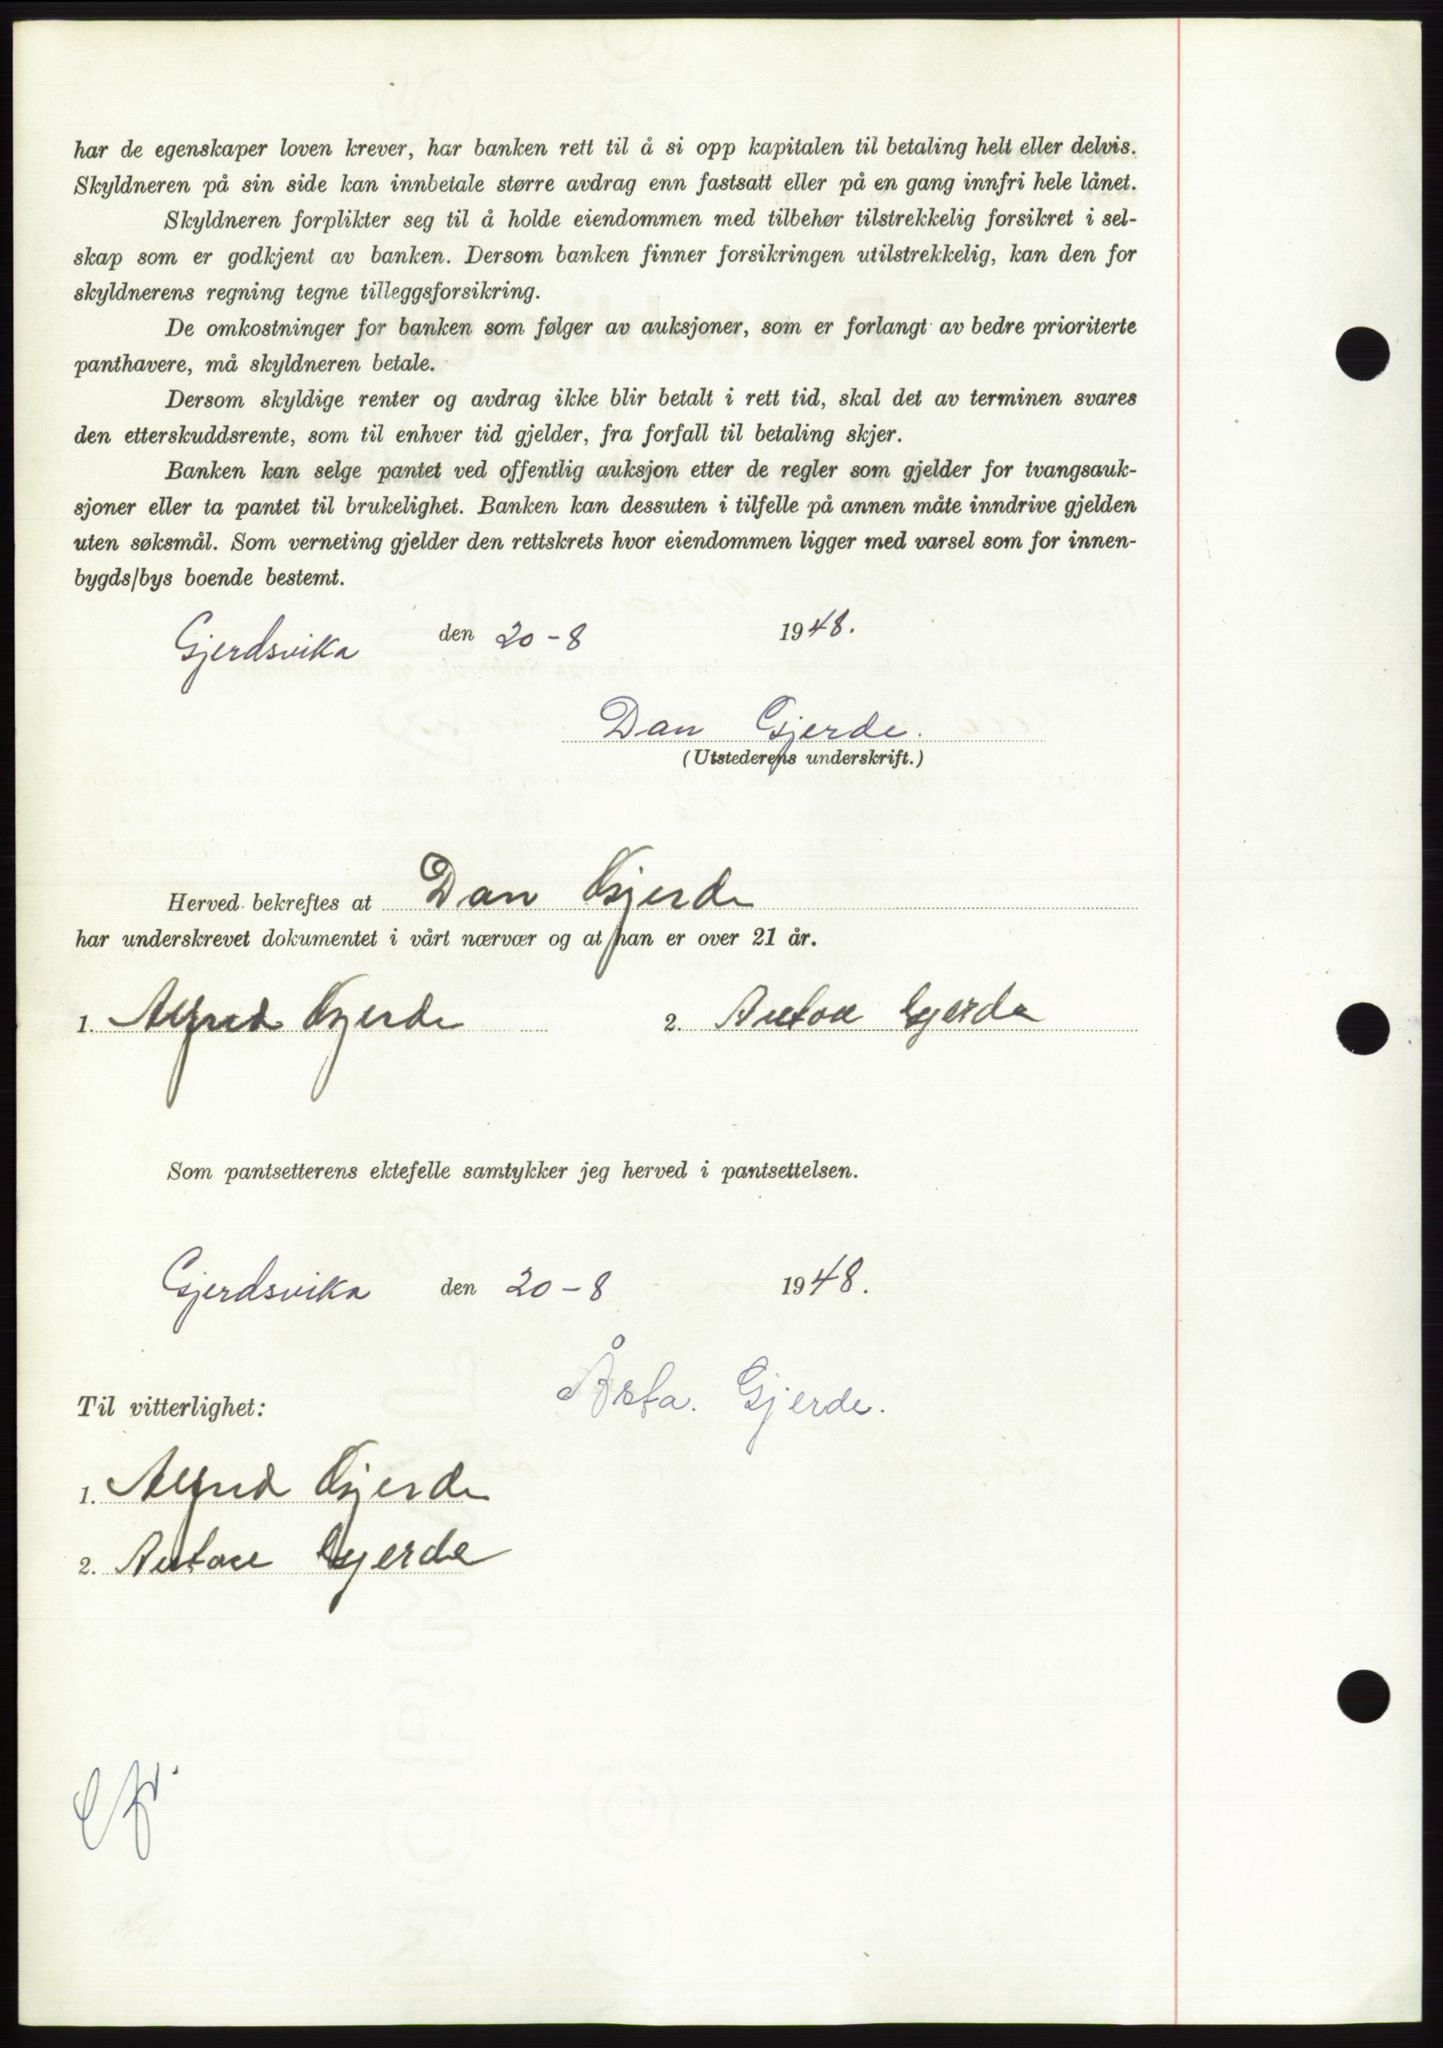 har de egenskaper loven krever, har banken rett til å si opp kapitalen til betaling helt eller delvis.
Skyldneren på sin side kan innbetale større avdrag enn fastsatt eller på en gang innfri hele lånet.
Skyldneren forplikter seg til å holde eiendommen med tilbehør tilstrekkelig forsikret i sel-
skap som er godkjent av banken. Dersom banken finner forsikringen utilstrekkelig, kan den for
skyldnerens regning tegne tilleggsforsikring.
De omkostninger for banken som følger av auksjoner, som er forlangt av bedre prioriterte
panthavere, må skyldneren betale.
Dersom skyldige renter og avdrag ikke blir betalt i rett tid, skal det av terminen svares
den etterskuddsrente, som til enhver tid gjelder, fra forfall til betaling skjer.
Banken kan selge pantet ved offentlig auksjon etter de regler som gjelder for tvangsauk-
sjoner eller ta pantet til brukelighet. Banken kan dessuten i tilfelle på annen måte inndrive gjelden
uten søksmål. Som verneting gjelder den rettskrets hvor eiendommen ligger med varsel som for innen-
bygds/bys boende bestemt.
Gjerdsvika den 20-8 1948.
Dan Gjerde.
(Utstederens underskrift.)
Herved bekreftes at Dan Gjerde
har underskrevet dokumentet i vårt nærvær og at han er over 21 år.
1. Alfred Gjerde 2. Anton Gjerde
Som pantsetterens ektefelle samtykker jeg herved i pantsettelsen.
Gjerdsvika den 20-8 1948.
Åsta. Gjerde.
Til vitterlighet:
1. Alfred Gjerde
2. Anton Gjerde